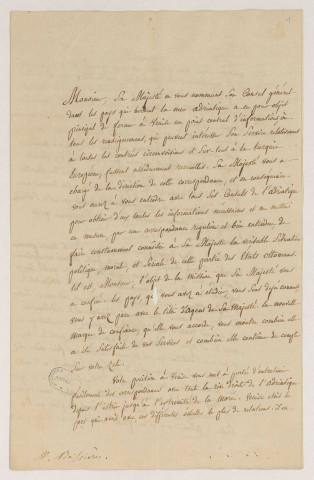 Monsieur, Sa Majesté en vous nommant Son Consul général
dans les pays qui bordent la mer adriatique a eu pour objet
principal de former à Venise un point central d'informations où
tous les renseignemens, qui peuvent intéresser Son Service relativement
à toutes les contrées circonvoisines et Sur-tout à la turquie
Européenne, fussent assidument recueillis. Sa Majesté vous a
chargé de la direction de cette correspondance, et en conséquence
vous aurez à vous entendre avec tous Ses Consuls de l'adriatique
pour obtenir d'eux toutes les informations nécessaires et en mettre
en mesure par une correspondance régulière et bien entendue, de
faire constamment connaître à Sa Majesté la véritable Situation
politique, morale, et Sociale de cette partie des états ottomans.
tel est, Monsieur, l'objet de la mission que Sa Majesté vous
a confiée. les pays, que vous avez à étudier, vous Sont déjà connus
vous y avez paru avec le titre d'agent de Sa Majesté. la nouvelle
marque de confiance, qu'elle vous accorde, vous montre combien elle
a été Satisfaite de vos Services et combien elle continue de compter
Sur votre Zèle.
Votre position à Venise vous met à portée d'entretenir
facilement des correspondances avec toute la rive droite de l'Adriatique
depuis l'istrie jusqu'à l'extrémité de la Morée. Venise étoit le
port qui avait avec ces différentes échelles le plus de relations.